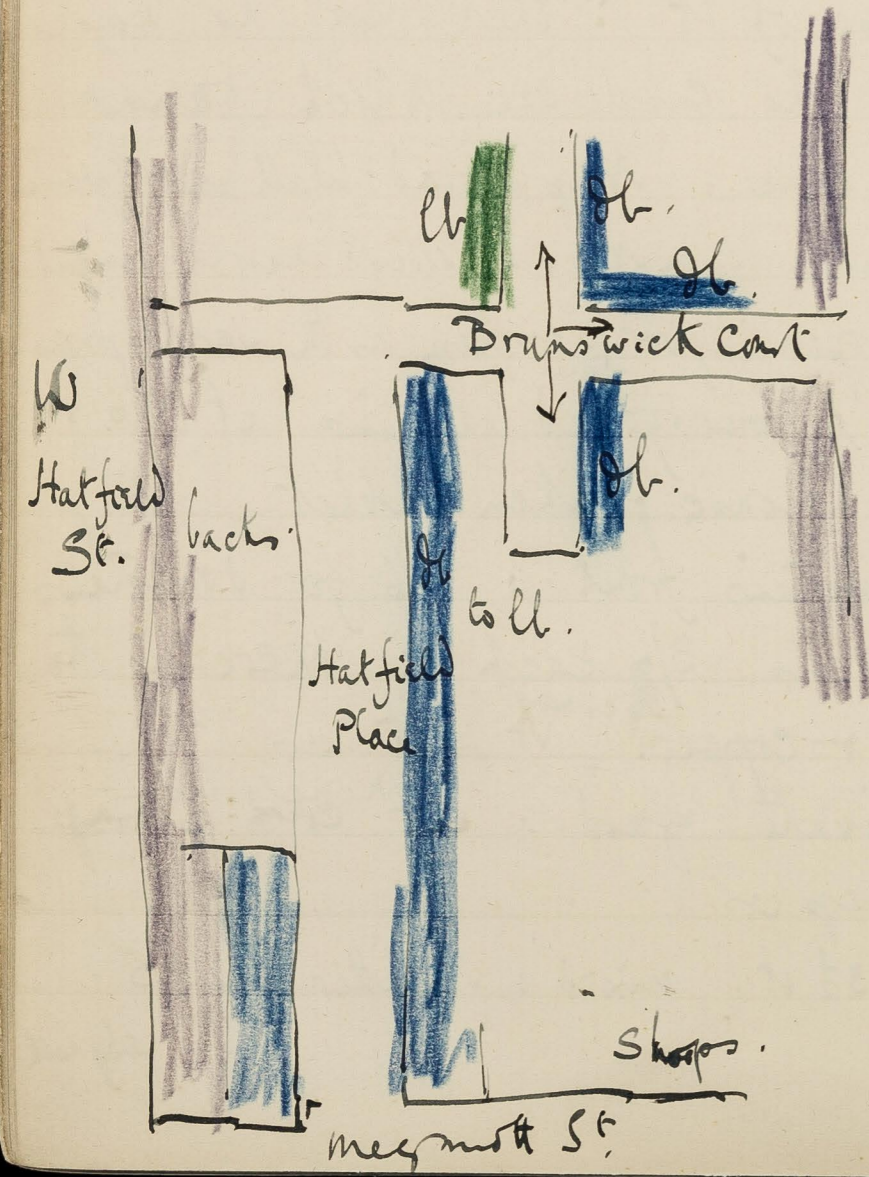 lb
db.
db.
Brunswick Court
W
Hatfield
St.
backs.
db.
db
to lb.
Hatfield
Place
Shops.
Meymott St.